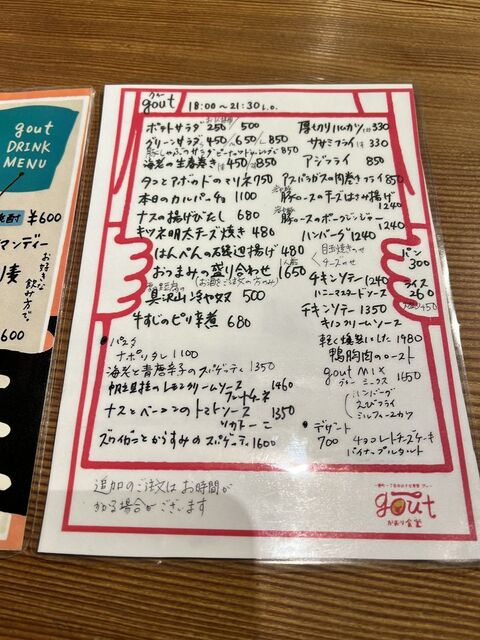 gout
DRINK
MENU
¥600
マンディー
お好きな
飲み方で。
600
グー
gout 18:00〜21:30 L.O.
ポテトサラダ 250/500
グリーンサラダ 450/650/850
海老の生春巻き 450/850
タコとアボカドのマリネ 750
本日のカルパッチョ 1100
ナスの揚げびたし 680
キツネ明太チーズ焼き 480
はんぺんの磯辺揚げ 480
おつまみの盛り合わせ 1650
(お酒をご注文の方のみ)
具沢山冷や奴 500
牛すじのピリ辛煮 680
・パスタ
ナポリタン 1100
海老と青唐辛子のスパゲティ 1350
帆立貝柱のレモンクリームソース 1460
ナスとベーコンのトマトソース 1350
ズワイガニとからすみのスパゲティ 1600
厚切りハムカツ 330
ササミフライ 330
アジフライ 850
アスパラガスの肉巻きフライ
豚ロースのチーズはさみ揚げ
1240
豚ロースのポークジンジャー
1240
ハンバーグ 1240
目玉焼きのせ
チーズのせ
チキンソテー 1240
ハニーマスタードソース
チキンソテー 1350
キノコクリームソース
軽く燻製にした 1980
鴨胸肉のロースト
gout mix 1650
グー ミックス
ハンバーグ
えびフライ
ミルフィーユカツ
・デザート
700 チョコレートチーズケーキ
パイナップルタルト
パン
300
ライス
260
450
追加のご注文はお時間が
かかる場合がございます
gout
かおり食堂